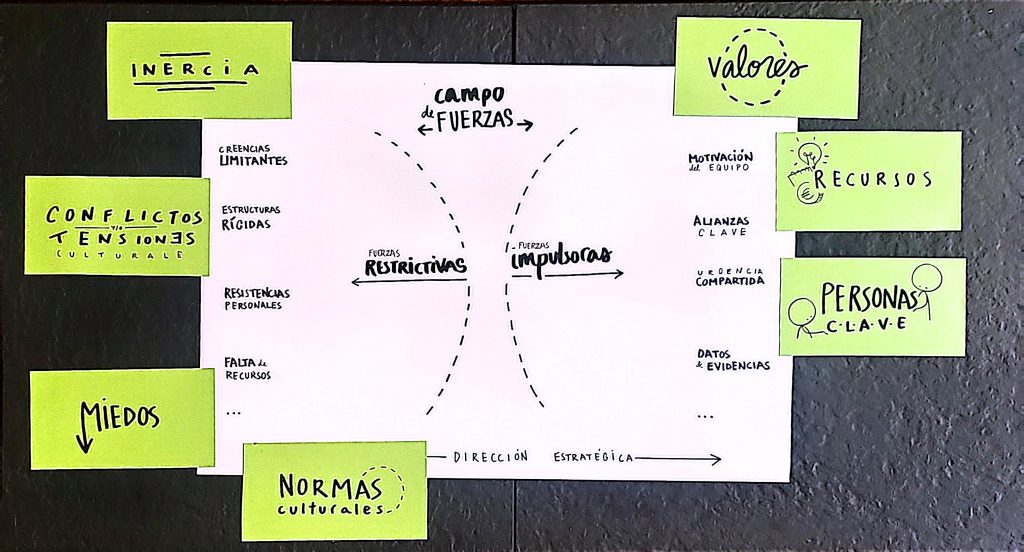 INERCIA
CONFLICTOS
y/o
TENSIONES
CULTURALE
MIEDOS
NORMAS
culturales
CAMPO
de FUERZAS
CREENCIAS
LIMITANTES
ESTRUCTURAS
RÍGIDAS
RESISTENCIAS
PERSONALES
FALTA de
RECURSOS
...
FUERZAS
RESTRICTIVAS
FUERZAS
impulsoras
MOTIVACIÓN
del EQUIPO
ALIANZAS
CLAVE
URGENCIA
COMPARTIDA
DATOS
& EVIDENCIAS
...
DIRECCIÓN ESTRATÉGICA
valores
RECURSOS
€
PERSONAS
C·L·A·V·E